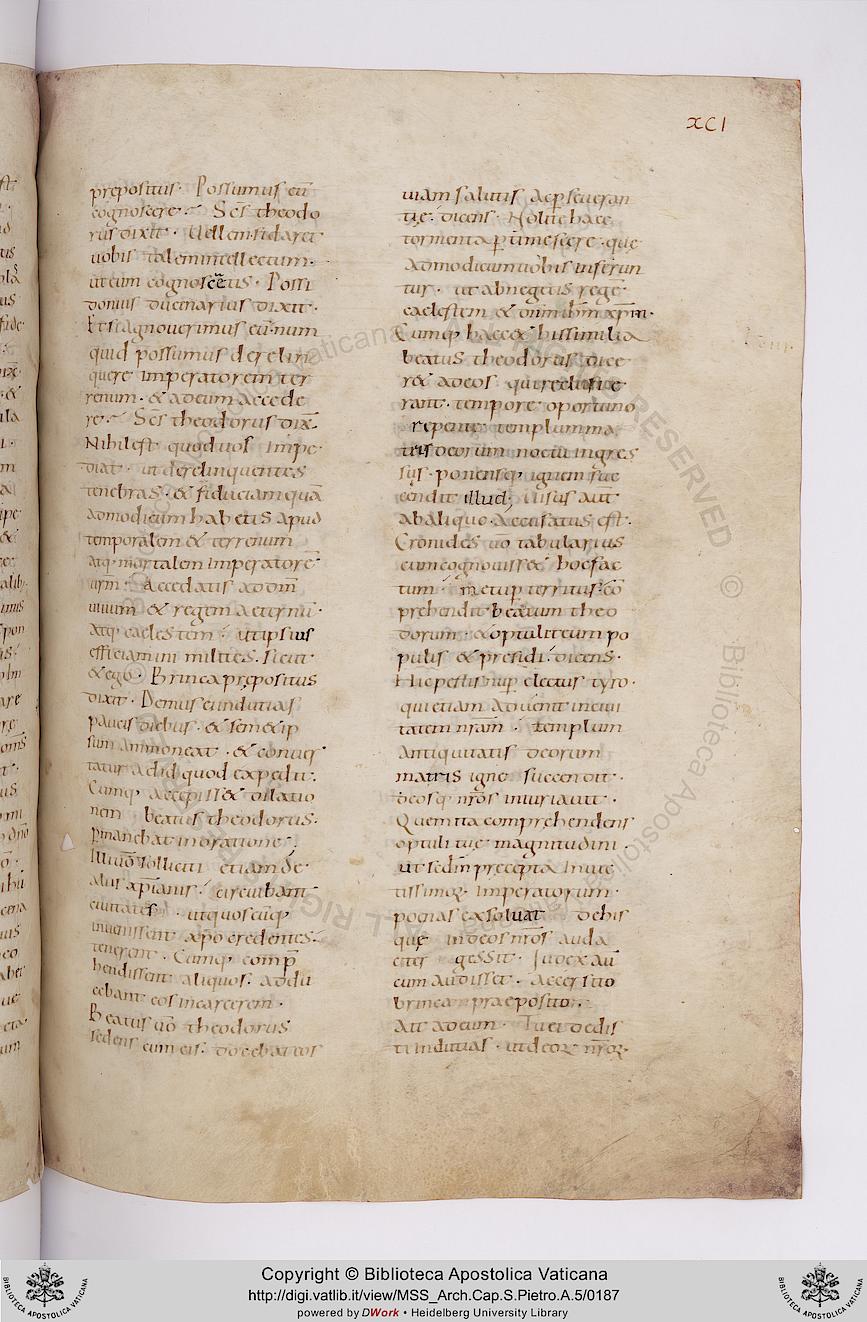 XCI
prepositus· Possumus eū
cognoscere· Scs theodo
rus dixit· Uellem fidaret
uobis talem intellectum·
ut eum cognoscetis· Possi
donius ducenarius dixit·
Et si agnouerimus eū· num
quid possumus derelin
quere imperatorem ter
renum· & ad eum accede
re· Scs theodorus dix̄·
Nihil est quod uos impe
diat· ut derelinquentes
tenebras· & fiduciam quā
ad modicum habetis apud
temporalem & terrenum
atq· mortalem imperatorē
urm̄· Accedatis ad dm̄
uiuum & regem aeternū·
atq· caelestem· ut ipsius
efficiamini milites· sicut
& ego· Brinca prepositus
dixit· Demus ei indutias
paucis diebus· & semetip
sum ammoneat· & conuer
tatur ad id quod expedit·
Cumq· accepiss& dilatio
nem beatus theodorus·
pmanebat in oratione·
Illi uō solliciti etiam de
aliis xp̄ianis· circuibant
ciuitates· ut quoscūq·
inuenissent xp̄o credentes·
tenerent· Cumq· comp̄
hendissent aliquos· addu
cebant eos in carcerem·
Beatus uō theodorus
sedens cum eis· docebat eos
uiam salutis ac pseueran
tie· dicens· Nolite haec
tormenta ptimescere· que
ad modicum uobis inferun
tur· ut abnegetis regē
caelestem & dnm̄ ihm̄ xpm̄·
Cumq· haec & his similia
beatus theodorus dice
r& ad eos· qui reclusi e
rant· tempore oportuno
repente templum ma
tris deorum noctu ingres
sus· ponensq· ignem suc
cendit illud; Uisus aut̄
ab aliquo· accusatus est·
Cronides uō tabularius
cum cognouiss& hoc fac
tum· metu pterritus· cō
prehendit beatum theo
dorum· & optulit eum po
pulis & presidi· dicens·
Hic pestis nup electus tyro·
qui etiam aduenit in ciui
tatem nram̄· templum
antiquitatis deorum
matris igne succendit·
deosq· nrōs iniuriauit·
Quem ita comprehendens
optuli tue magnitudini·
ut sedm̄ precepta inuic
tissimor· imperatorum·
poenas exsoluat de his
que in deos nrōs auda
cter gessit· Iudex aū
cum audisset· accersito
brinca praeposito·
Ait ad eum· Tu ei dedis
ti indutias· ut deor nror̄·
Copyright © Biblioteca Apostolica Vaticana
http://digi.vatlib.it/view/MSS_Arch.Cap.S.Pietro.A.5/0187
powered by DWork • Heidelberg University Library